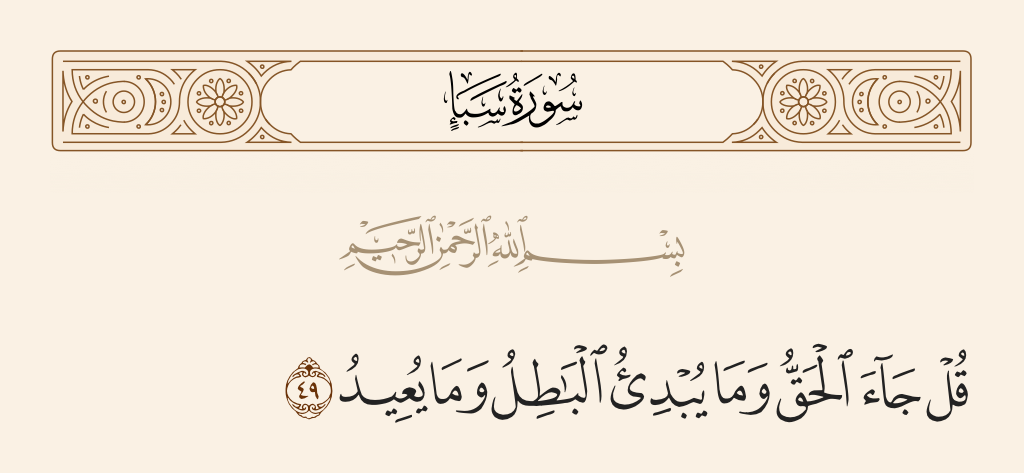 سُورَةُ سَبَإٍ
بِسْمِ ٱللَّهِ ٱلرَّحْمَٰنِ ٱلرَّحِيمِ
قُلْ جَآءَ ٱلْحَقُّ وَمَا يُبْدِئُ ٱلْبَٰطِلُ وَمَا يُعِيدُ ٤٩